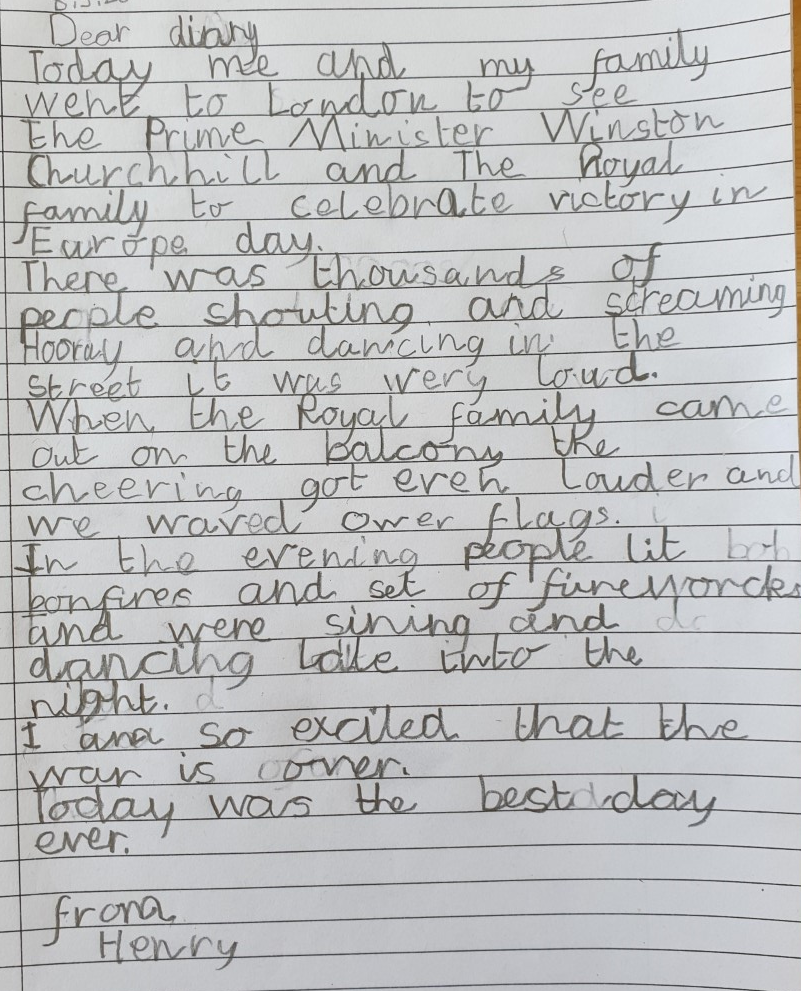 Dear diary
Today me and my family
went to London to see
the Prime Minister Winston
Churchhill and The Royal
family to celebrate victory in
Europe day.
There was thousands of
people shouting and screaming
Hooray and dancing in the
street it was wery loud.
When the Royal family came
out on the balcony the
cheering got even louder and
we waved ower flags.
In the evening people lit
bonfires and set of fireworcks
and were sining and
dancing late into the
night.
I am so excited that the
war is over.
Today was the best day
ever.
from
Henry